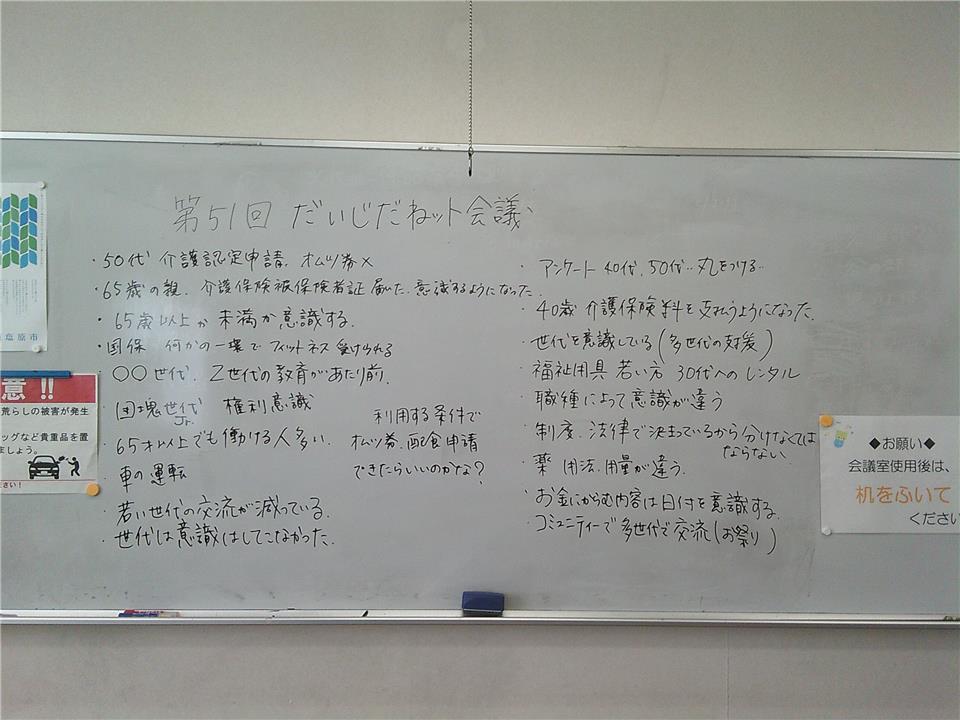 第51回 だいじだねット会議
・50代 介護認定申請. オムツ券×
・65歳の親. 介護保険被保険者証 届いた. 意識するようになった.
・65歳以上か 未満か 意識する.
・国保 何かの一環で フィットネス 受けられる
・〇〇世代. Z世代の教育があたり前.
・団塊世代 権利意識
Jr.
・65才以上でも働ける人多い.
・車の運転
・若い世代の交流が減っている.
・世代は意識はしてこなかった.
利用する条件で
オムツ券.配食申請
できたらいいのかな?
・アンケート 40代. 50代‥丸をつける‥
・40歳 介護保険料を支払うようになった.
・世代を意識している(多世代の支援)
・福祉用具 若い方 30代へのレンタル
・職種によって意識が違う
・制度. 法律で決まっているから分けなくては
ならない
・薬 用法.用量が違う.
・お金にからむ内容は日付を意識する.
・コミュニティーで多世代で交流(お祭り)
塩原市
意!!
荒らしの被害が発生
ッグなど貴重品を置
ましょう。
ださい!
◆お願い◆
会議室使用後は、
机をふいて
くださ